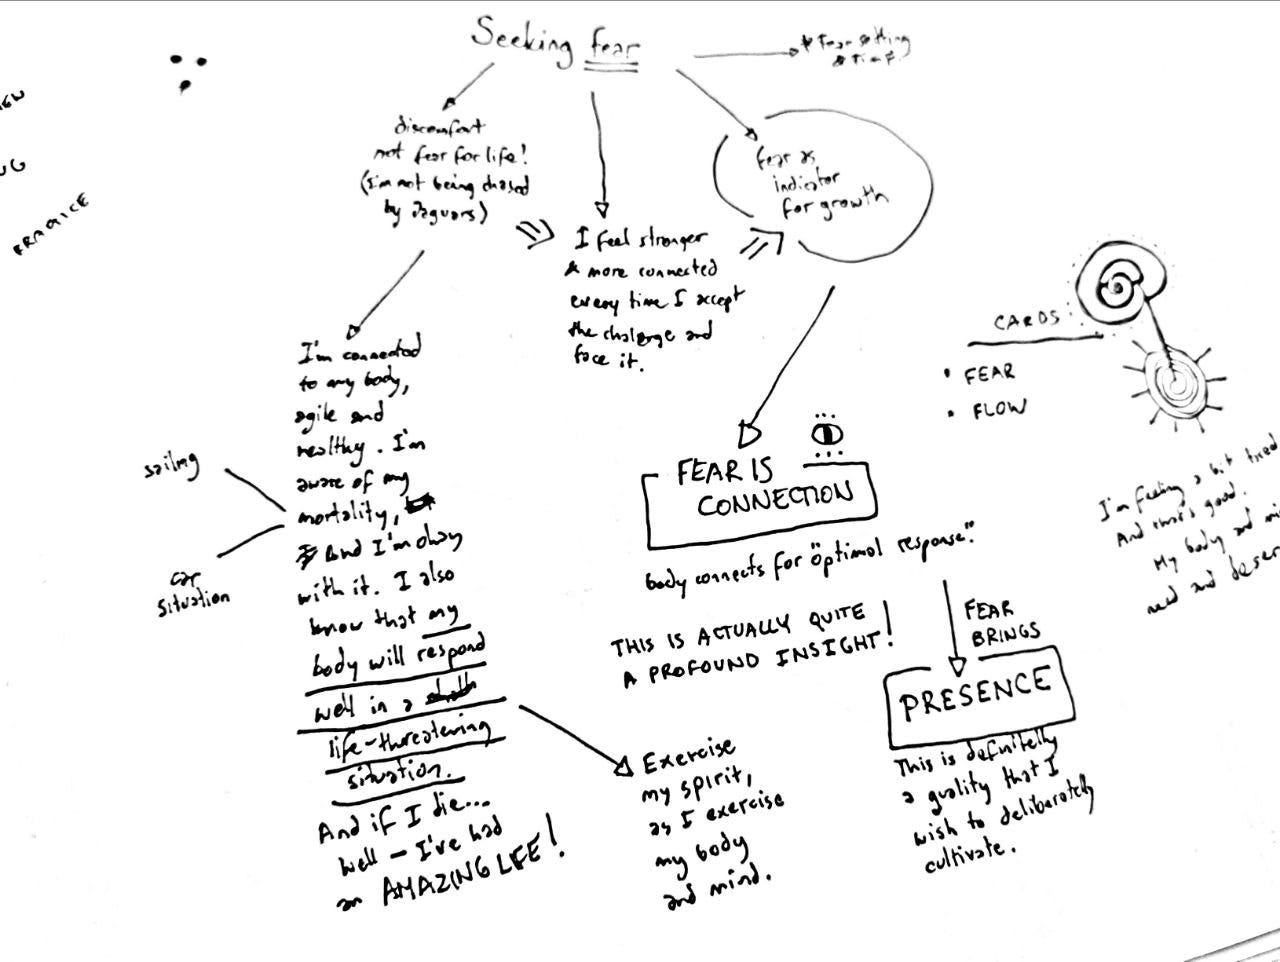 Seeking fear
* Fear setting
discomfort
not fear for life!
(I'm not being chased
by Jaguars)
I feel stronger
& more connected
every time I accept
the challenge and
face it.
fear as
indicator
for growth
I'm connected
to my body,
agile and
healthy. I'm
aware of my
mortality,
And I'm okay
with it. I also
know that my
body will respond
well in a
life-threatening
situation.
And if I die...
well - I've had
an AMAZING LIFE!
sailing
car
situation
Exercise
my spirit,
as I exercise
my body
and mind.
FEAR IS
CONNECTION
body connects for "optimal response."
THIS IS ACTUALLY QUITE
A PROFOUND INSIGHT!
FEAR
BRINGS
PRESENCE
This is definitelly
a quality that I
wish to deliberately
cultivate.
CARDS
• FEAR
• FLOW
I'm feeling a bit tired
And that's good.
My body and
need and
PRACTICE